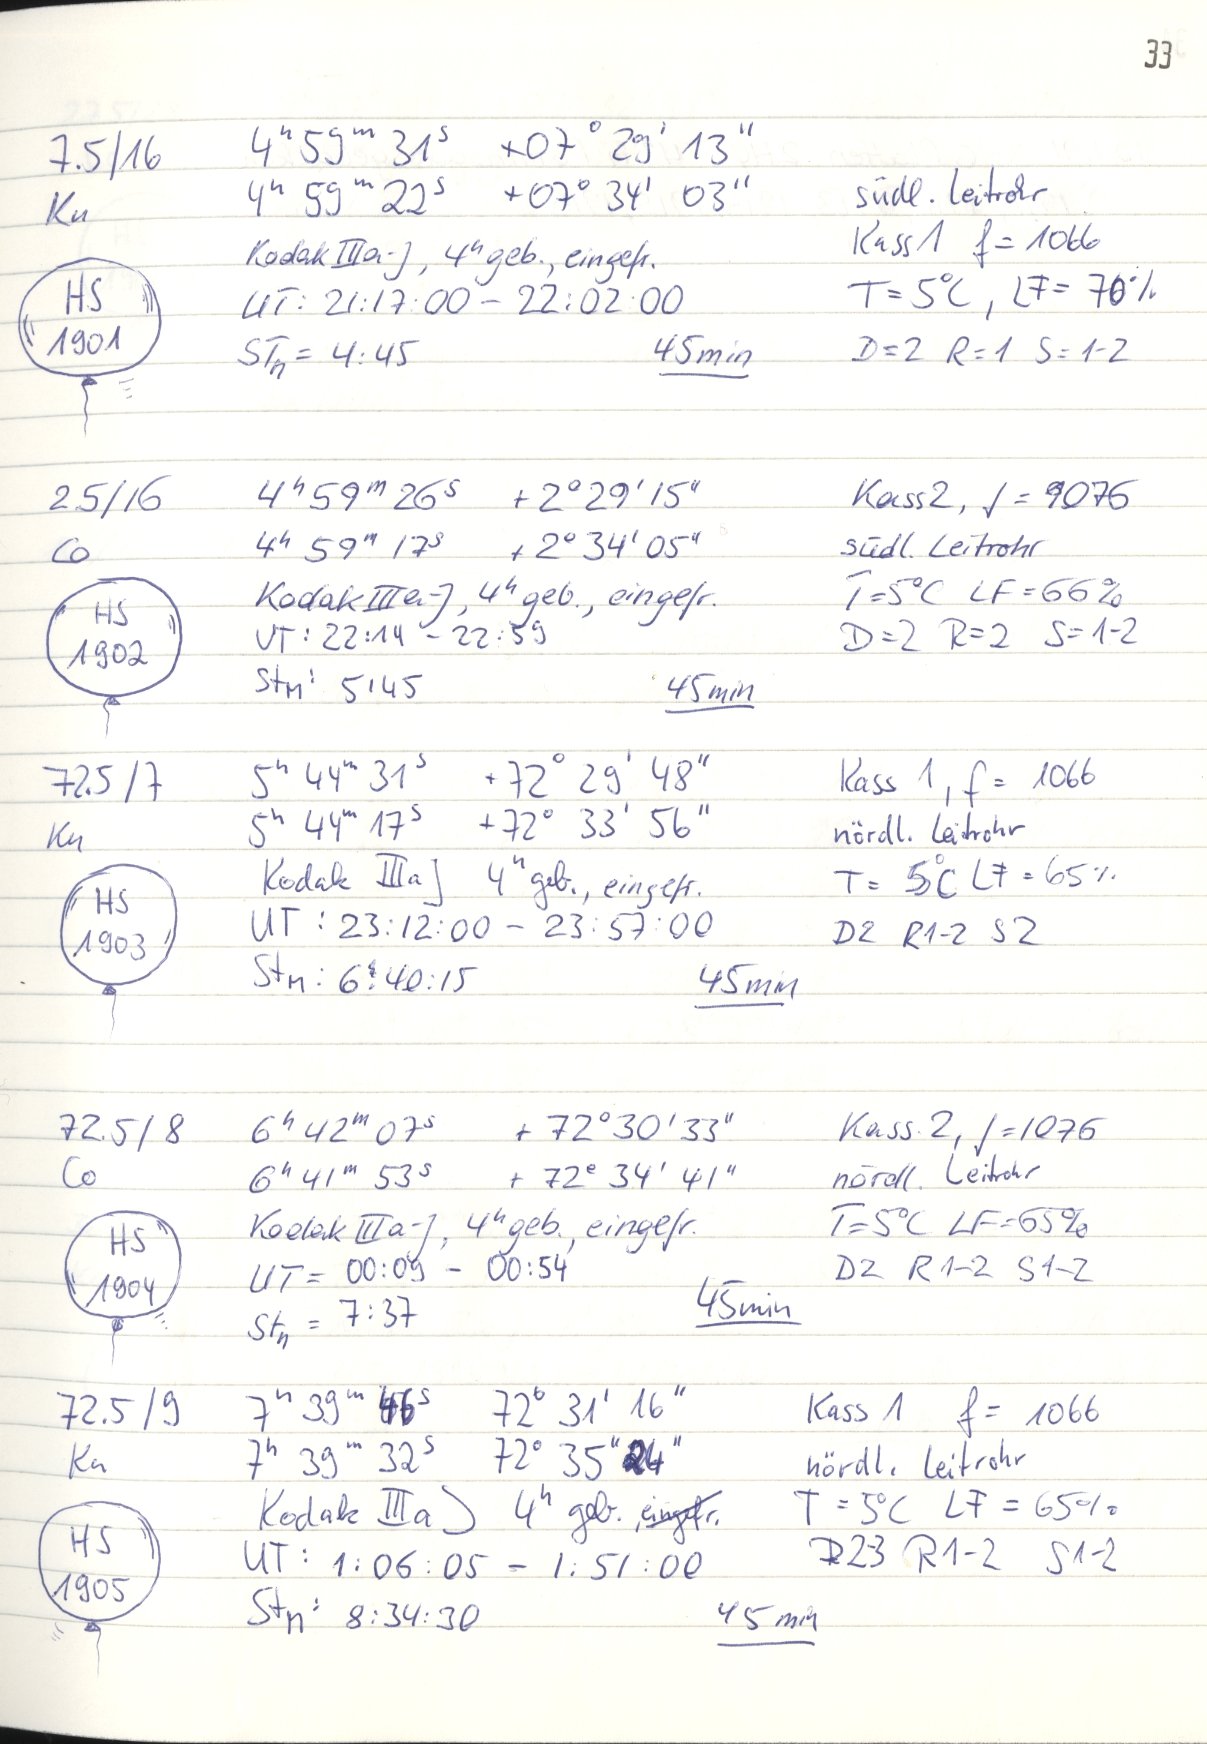 33
7.5/16 4ʰ 59ᵐ 31ˢ +07° 29' 13"
Ku 4ʰ 59ᵐ 22ˢ +07° 34' 03" südl. Leitrohr
Kodak IIIa-J, 4ʰ geb., eingefr. Kass 1 f = 1066
HS 1901 UT: 21:17:00 - 22:02:00 T = 5°C, LF = 70%
STₙ = 4:45 45min D=2 R=1 S=1-2
2.5/16 4ʰ 59ᵐ 26ˢ +2° 29' 15" Kass 2, f = 9076
Co 4ʰ 59ᵐ 17ˢ +2° 34' 05" südl. Leitrohr
HS 1902 Kodak IIIa-J, 4ʰ geb., eingefr. T=5°C LF=66%
UT: 22:14 - 22:59 D=2 R=2 S=1-2
Stₙ: 5:45 45min
72.5/7 5ʰ 44ᵐ 31ˢ +72° 29' 48" Kass 1, f = 1066
Ku 5ʰ 44ᵐ 17ˢ +72° 33' 56" nördl. Leitrohr
HS 1903 Kodak IIIaJ 4ʰ geb., eingefr. T = 5°C LF = 65%
UT: 23:12:00 - 23:57:00 D2 R1-2 S2
Stₙ: 6:40:15 45min
72.5/8 6ʰ 42ᵐ 07ˢ +72° 30' 33" Kass. 2, f = 1076
Co 6ʰ 41ᵐ 53ˢ +72° 34' 41" nördl. Leitrohr
HS 1904 Kodak IIIa-J, 4ʰ geb., eingefr. T=5°C LF=65%
UT = 00:09 - 00:54 D2 R1-2 S1-2
Stₙ = 7:37 45min
72.5/9 7ʰ 39ᵐ 46ˢ 72° 31' 16" Kass 1 f = 1066
Ku 7ʰ 39ᵐ 32ˢ 72° 35" 24" nördl. Leitrohr
Kodak IIIaJ 4ʰ geb., eingefr. T = 5°C LF = 65%
HS 1905 UT: 1:06:05 - 1:51:00 D23 R1-2 S1-2
Stₙ: 8:34:30 45min